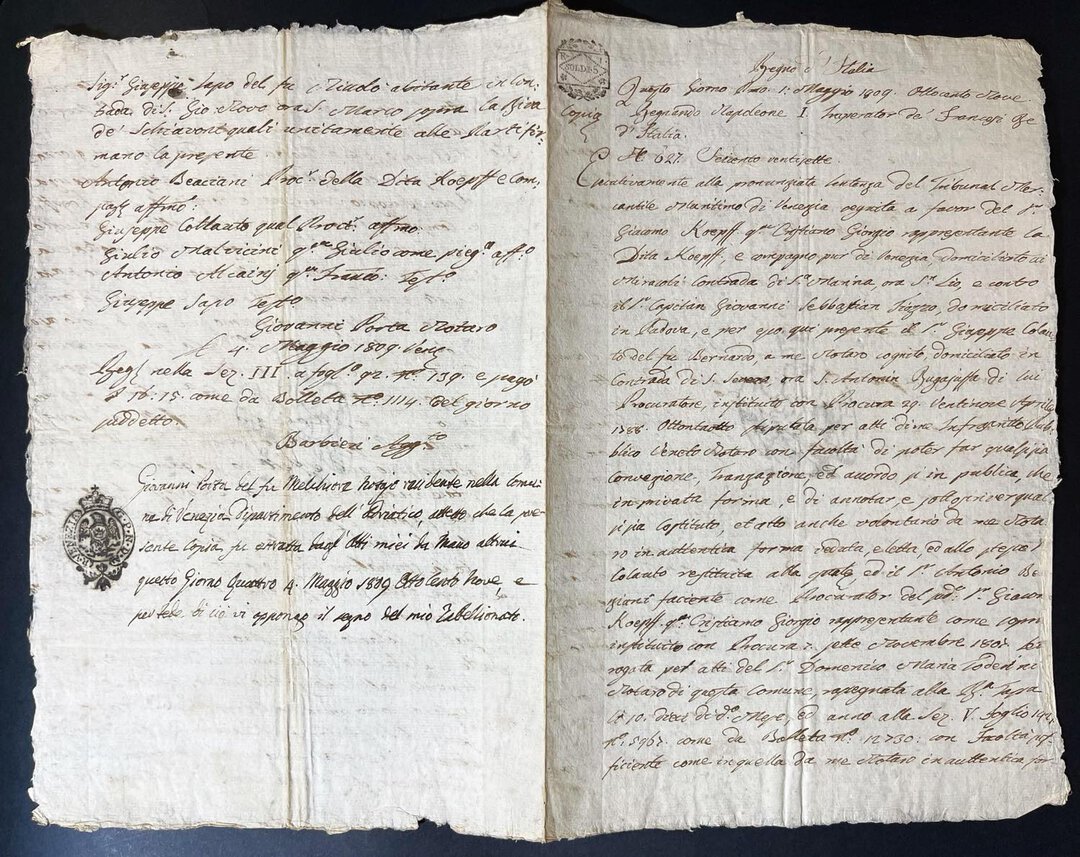 Sig.r Giuseppe Sapo del fu Nicolò abitante in Con-
trada di S. Gio Novo ora S. Marco sopra la Riva
de' Schiavoni quali unitamente alle Parti fir-
mano la presente
Antonio Beaciani Proc.r della Dita Koepff e Com-
pag affmo.
Giuseppe Collauto qual Proc.r affmo
Giulio Malvicini q.m Giulio come pieg.o aff.o
Antonio q.m Franco: Test.o
Giuseppe Sapo Testo
Giovanni Porta Notaro
A 4. Maggio 1809. Ven.a
Reg nella Sez. III a fogl.o 92 n.o 139. e pagò
16:15. come da Bolleta n.o 1114. del giorno
suddetto.
Barbieri Agg.to
Giovanni Porta del fu Melchiore Notajo residente nella Comu-
na di Venezia Dipartimento dell' Adriatico, attesto che la pre-
sente Copia fu estratta dagl' Atti miei da Mano altrui
questo Giorno Quattro 4. Maggio 1809 Otto cento Nove, e
per fede di ciò vi appongo il segno del mio Tabellionato.
R. I.
SOLDI 5
Regno d'Italia
Copia
Questo Giorno Pmo. 1: Maggio 1809. Ottocento Nove
Regnando Napoleone I Imperator de' Francesi Re
d'Italia.
N.o 627. Seicento ventisette.
Esecutivamente alla pronunziata Sentenza del Tribunal Mer-
cantile Maritimo di Venezia seguita a favor del S.r
Giacomo Koepff q.m Cristiano Giorgio rappresentante la
Dita Koepff, e compagno pur di Venezia domiciliato ai
Miracoli Contrada di S.ta Marina, ora S.n Lio, e contro
il S.r Capitan Giovanni Sebbastian domiciliato
in Padova, e per esso qui presente il S.r Giuseppe Colau-
to del fu Bernardo a me Notaro cognito, domiciliato in
Contrada di S. ora S. Antonin Rugagiuffa di lui
Procuratore, instituito con Procura 29. Ventinove Aprile
1788. Ottantaotto stipulata per atti di me Infrascritto Pub-
blico Veneto Notaro con facoltà di poter far qualsisia
convenzione, Transazione, ed accordo sì in publica, che
in privata forma, e di annotar, e sottoscriver qual-
sisia costituto, et atto anche volontario da me Nota-
ro in autentica forma veduta, e letta, ed allo stesso S.r
Colauto restituita alla quale ed il S.r Antonio Be-
ziani faciente come Procurator del sud.o S.r Giacomo
Koepff q.m Cristiano Giorgio rappresentante come sopra
instituito con Procura 7. sette Novembre 1807. ro-
gata per atti del S.r Domenico Maria Toderini
Notaro di questa Comune, rassegnata alla R.a Tassa
li 10. dieci di d.o Mese, ed anno alla Sez. V. foglio
n.o 5967. come da Bolleta n.o 12730. con facoltà suf-
ficiente come in quella da me Notaro in autentica for-